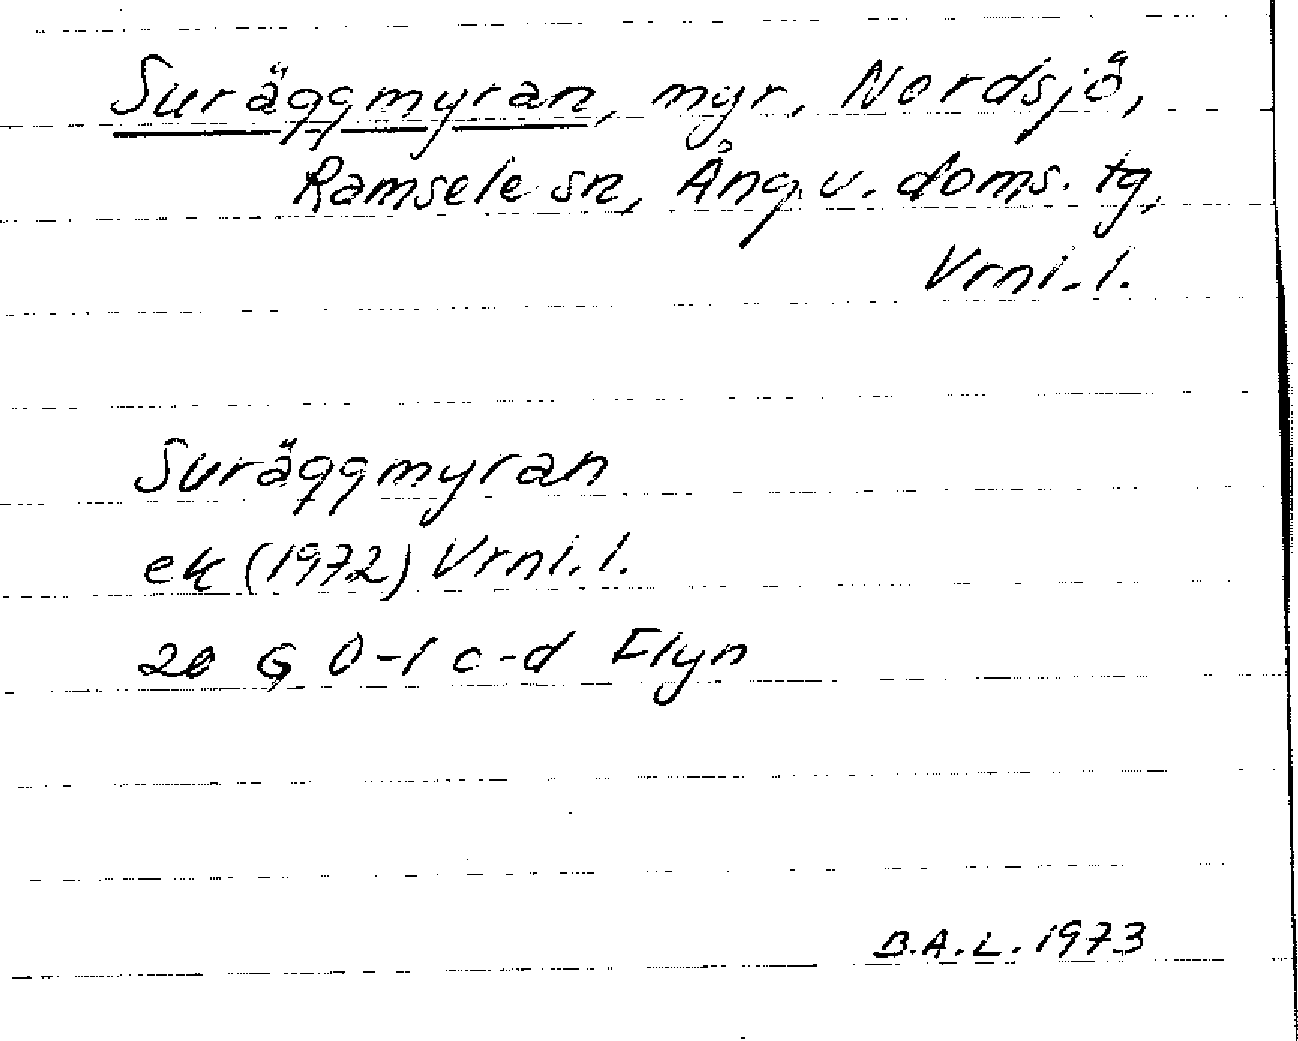 Suräggmyran, myr, Nordsjö,
Ramsele sn, Ång. v. doms. tg,
Vrnl. l.
Suräggmyran
ek (1972) Vrnl. l.
20 G 0-1 c-d Flyn
B.A.L. 1973